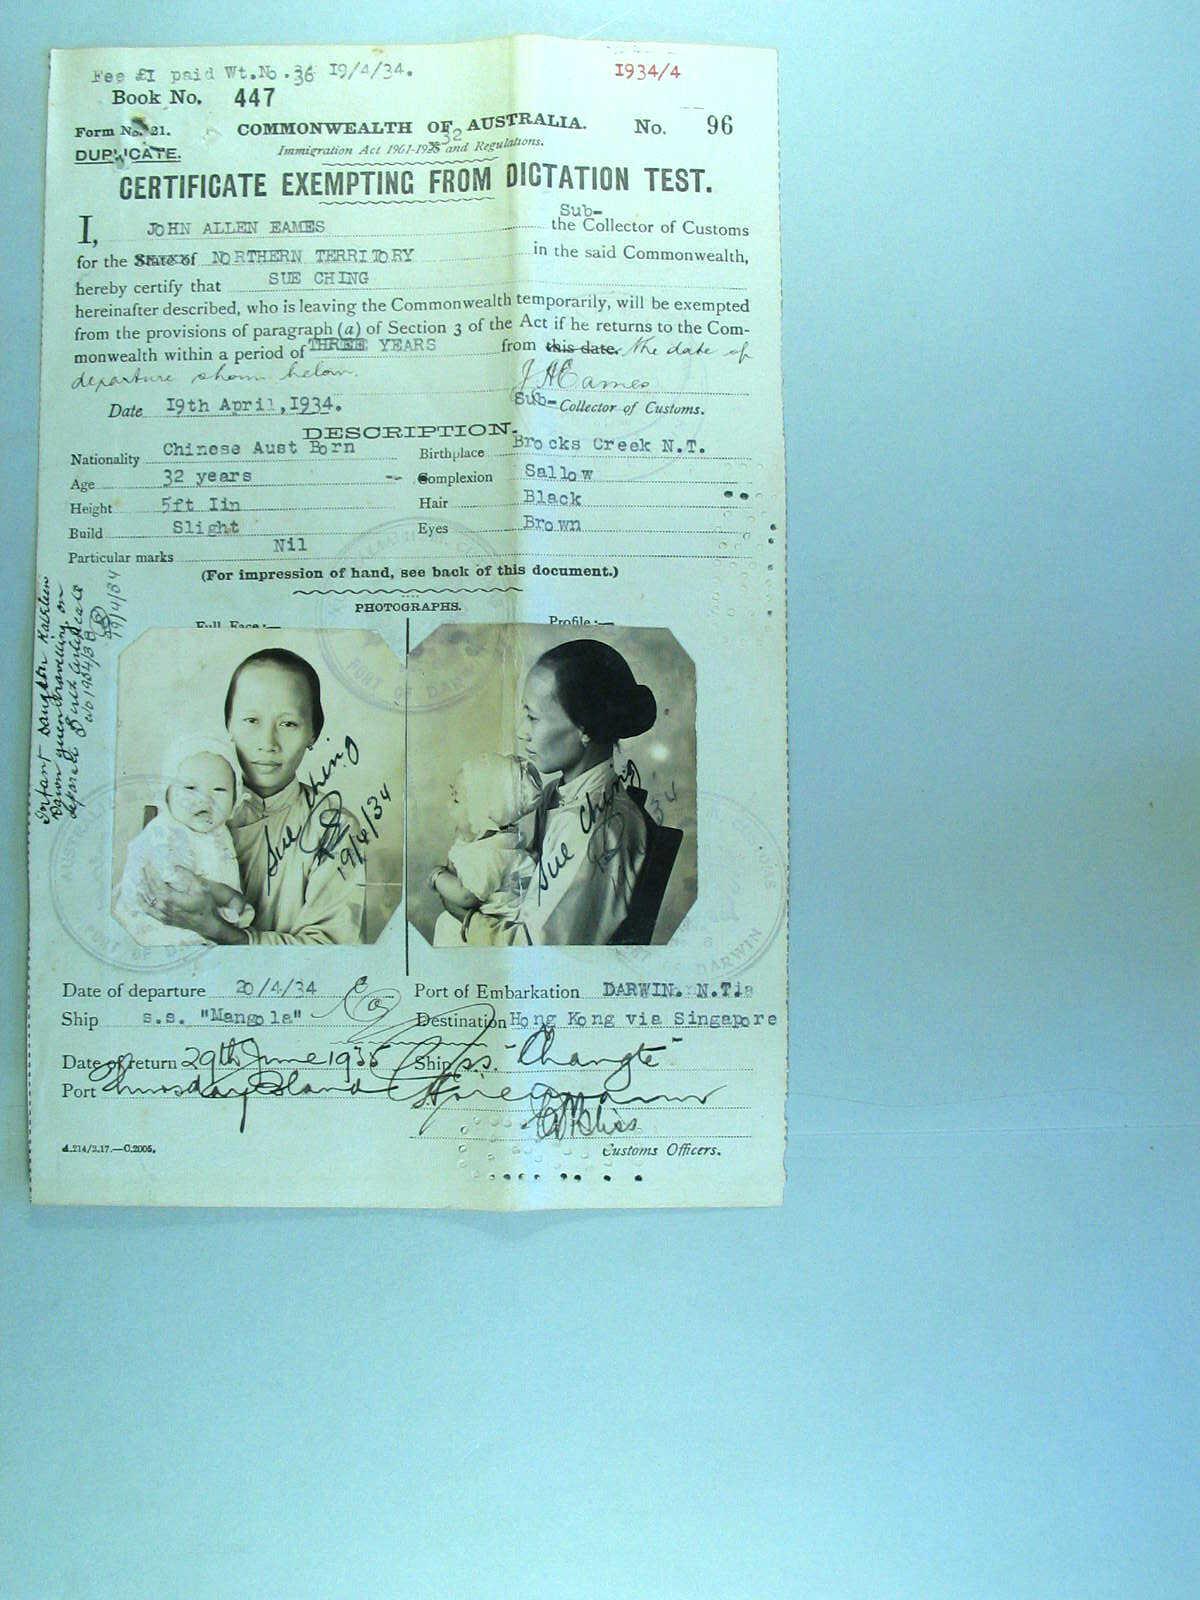 Fee £I paid Wt.No.36 19/4/34.
1934/4
Book No. 447
Form No. 21.
COMMONWEALTH OF AUSTRALIA.
No. 96
DUPLICATE.
32
Immigration Act 1901-1925 and Regulations.
CERTIFICATE EXEMPTING FROM DICTATION TEST.
Sub-
I, JOHN ALLEN EAMES the Collector of Customs
for the State of NORTHERN TERRITORY in the said Commonwealth,
hereby certify that SUE CHING
hereinafter described, who is leaving the Commonwealth temporarily, will be exempted
from the provisions of paragraph (a) of Section 3 of the Act if he returns to the Com-
monwealth within a period of THREE YEARS from this date. the date of
departure shown below.
J A Eames
Date 19th April,1934.
Sub-Collector of Customs.
DESCRIPTION.
Nationality Chinese Aust Born Birthplace Brocks Creek N.T.
Age 32 years Complexion Sallow
Height 5ft Iin Hair Black
Build Slight Eyes Brown
Particular marks Nil
(For impression of hand, see back of this document.)
PHOTOGRAPHS.
Full Face:— Profile:—
Infant Daughter Kathleen
Dawn Yuen travelling on
separate Birth Certificate
No 1934/3
19/4/34
PORT OF DARWIN
Sue Ching
19/4/34
Sue Ching
34
PORT OF DA
DARWIN
Date of departure 20/4/34 Port of Embarkation DARWIN. N.T.
Ship s.s. "Mangola" Destination Hong Kong via Singapore
Date of return 29th June 1935 Ship s.s. "Changte"
Port Thursday Island
Customs Officers.
A.214/3.17.—C.2005.